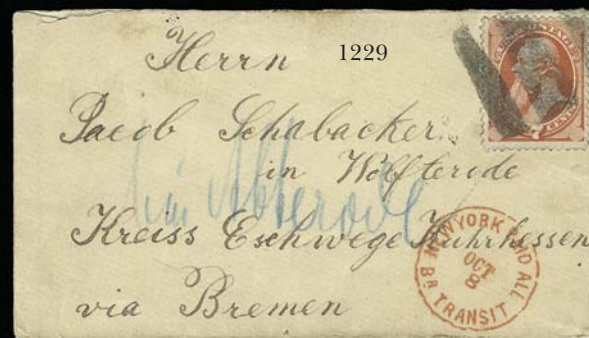 Herrn 1229
Jacob Schabacker
in Wolfteride
Kreiss Eschwege Kuhrhessen
via Bremen
NEW YORK PAID ALL
OCT
8
BR TRANSIT